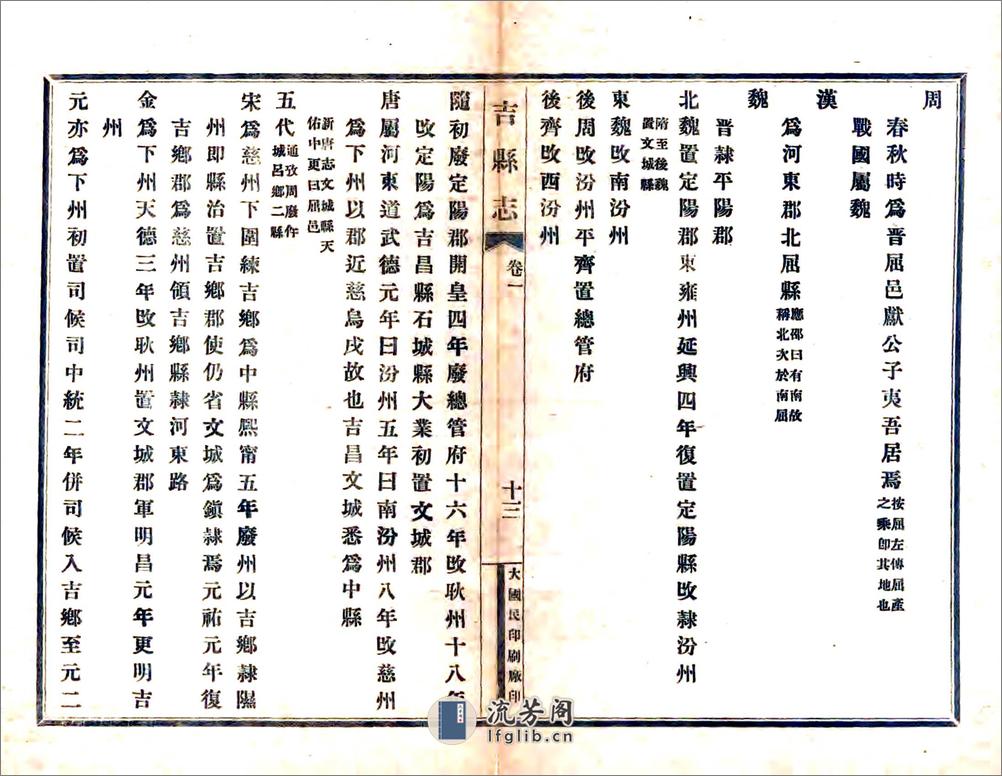 周
春秋時爲晋屈邑獻公子夷吾居焉按屈左傳屈產
之乘卽其地也
戰國屬魏
漢
爲河東郡北屈縣應邵曰有南故
稱北次於南屈
魏
晋隸平陽郡
北魏置定陽郡東雍州延興四年復置定陽縣改隸汾州
隋至後魏
置文城縣
東魏改南汾州
後周改汾州平齊置總管府
後齊改西汾州
吉縣志
卷一
十三
大國民印刷廠印
隨初廢定陽郡開皇四年廢總管府十六年改耿州十八年
改定陽爲吉昌縣石城縣大業初置文城郡
唐屬河東道武德元年曰汾州五年曰南汾州八年改慈州
爲下州以郡近慈烏戍故也吉昌文城悉爲中縣
新唐志文城縣天
佑中更曰屈邑
五代通攷周廢仵
城呂鄉二縣
宋爲慈州下團練吉鄉爲中縣熙甯五年廢州以吉鄉隸隰
州即縣治置吉鄉郡使仍省文城爲鎭隸焉元祐元年復
吉鄉郡爲慈州領吉鄉縣隸河東路
金爲下州天德三年改耿州置文城郡軍明昌元年更明吉
州
元亦爲下州初置司候司中統二年併司候入吉鄉至元二
流芳阁
lfglib.cn